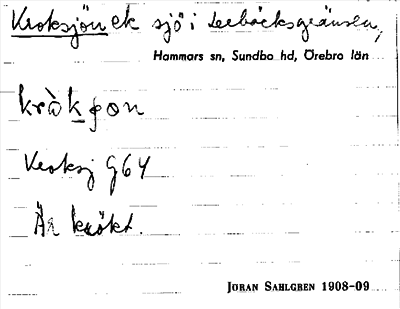 Kroksjön ek sjö i Leebäcksgränsen,
Hammars sn, Sundbo hd, Örebro län
kràkʃon
Kroksj G64
Är krökt.
JÖRAN SAHLGREN 1908-09